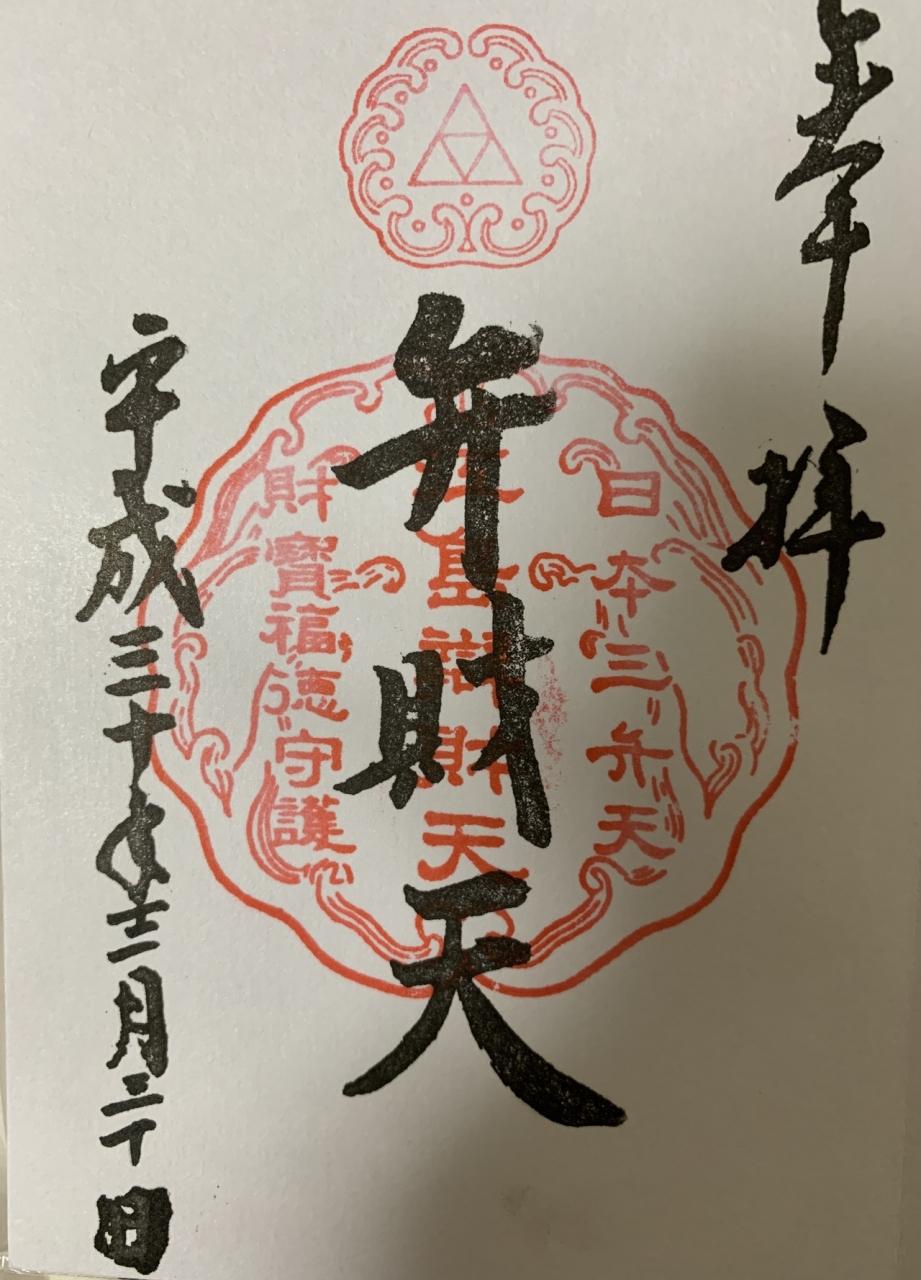 奉拝
日本三弁天
島財天
弁財天
財寶福徳守護
平成三十年十二月三十日